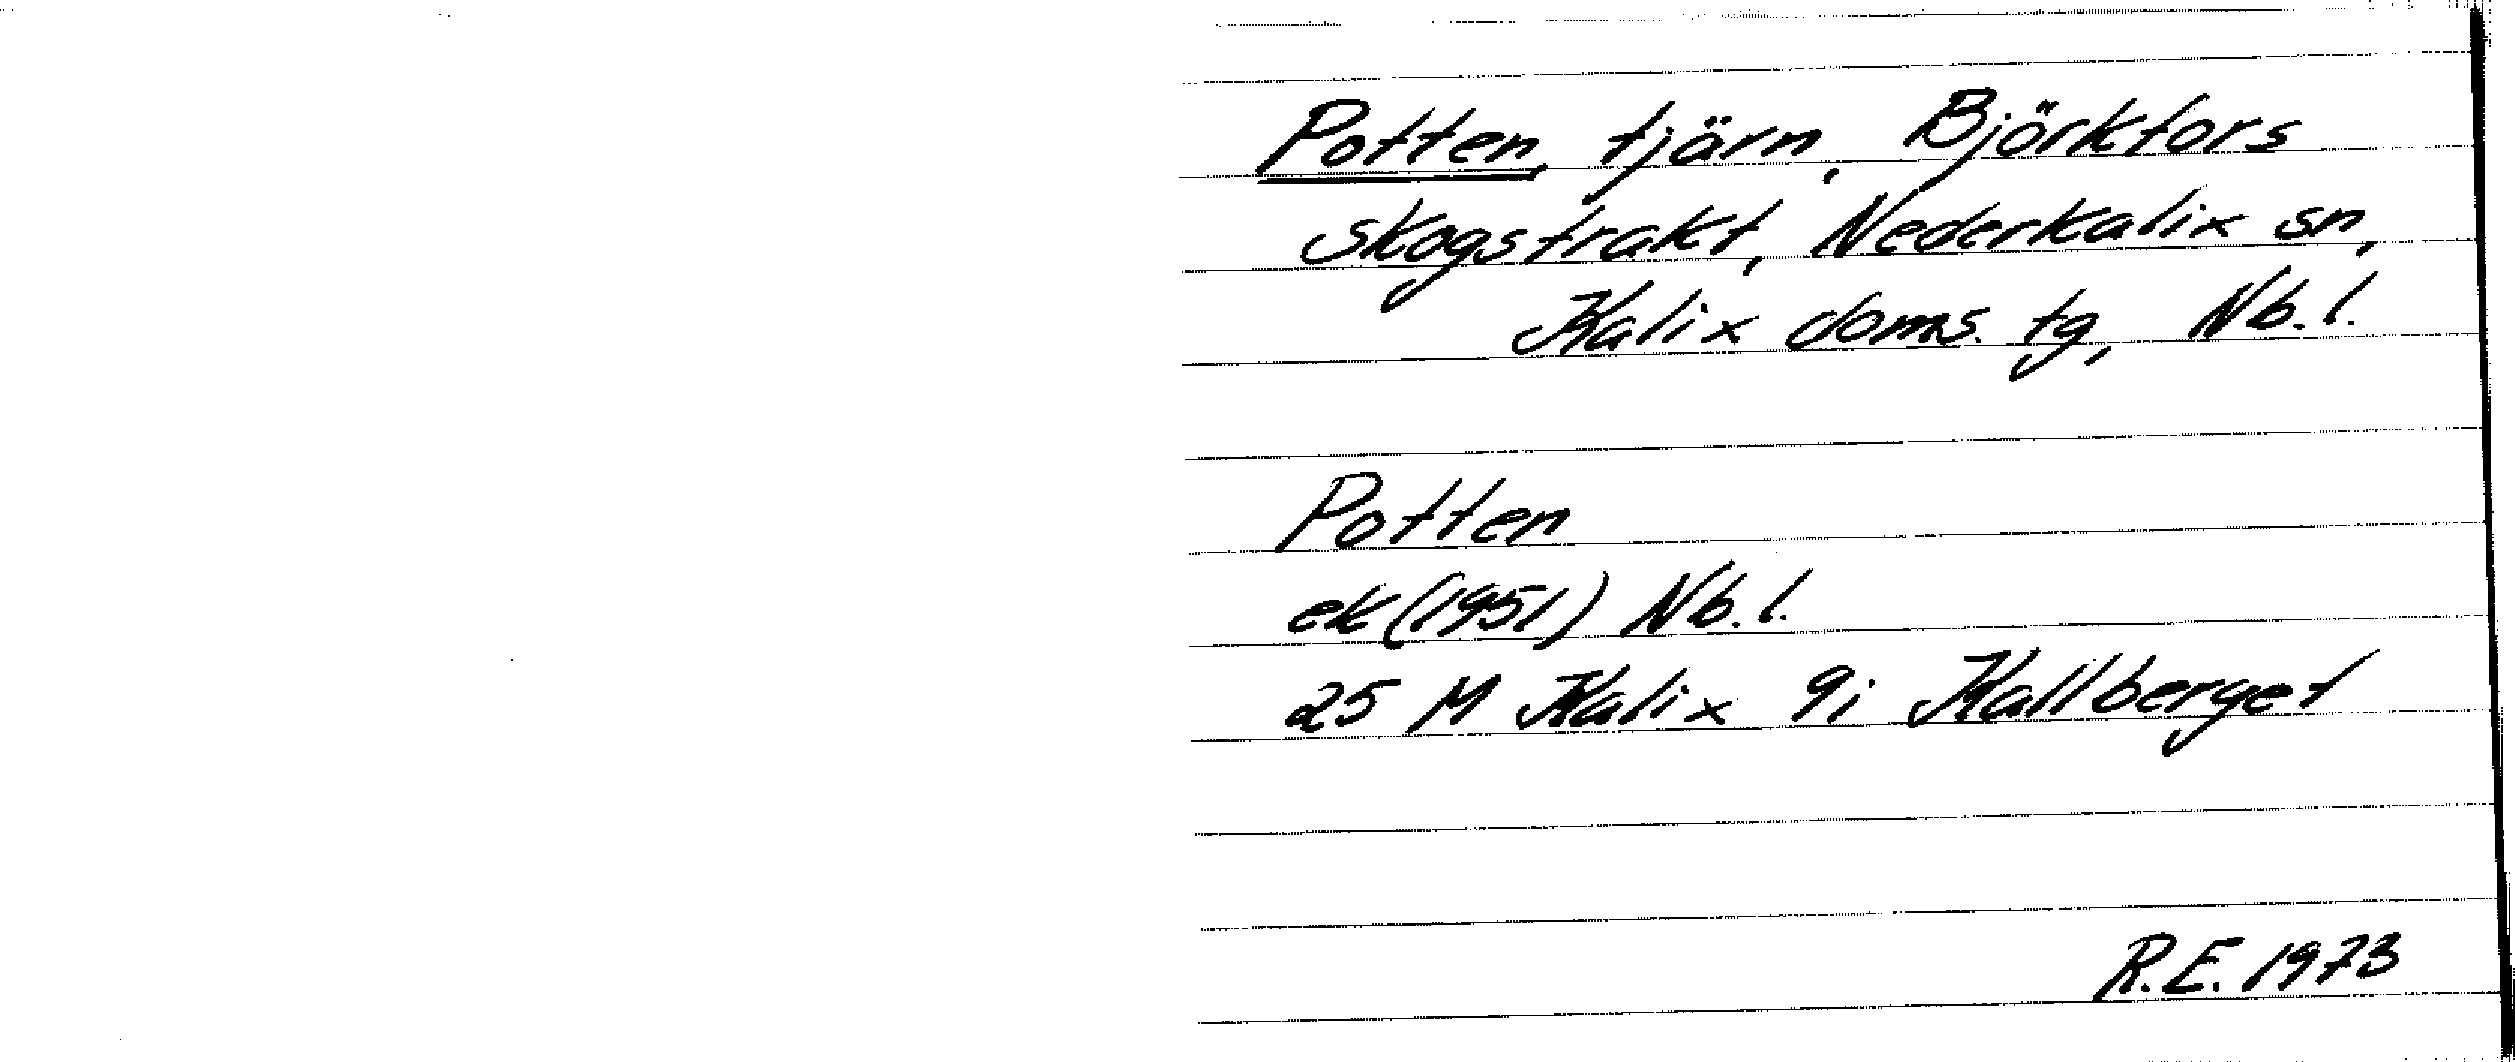 Potten, tjärn, Björkfors
skogstrakt, Nederkalix sn,
Kalix doms. tg, Nb.l.
Potten
ek (1951) Nb.l.
25 M Kalix 9i Kallberget
R.E. 1973